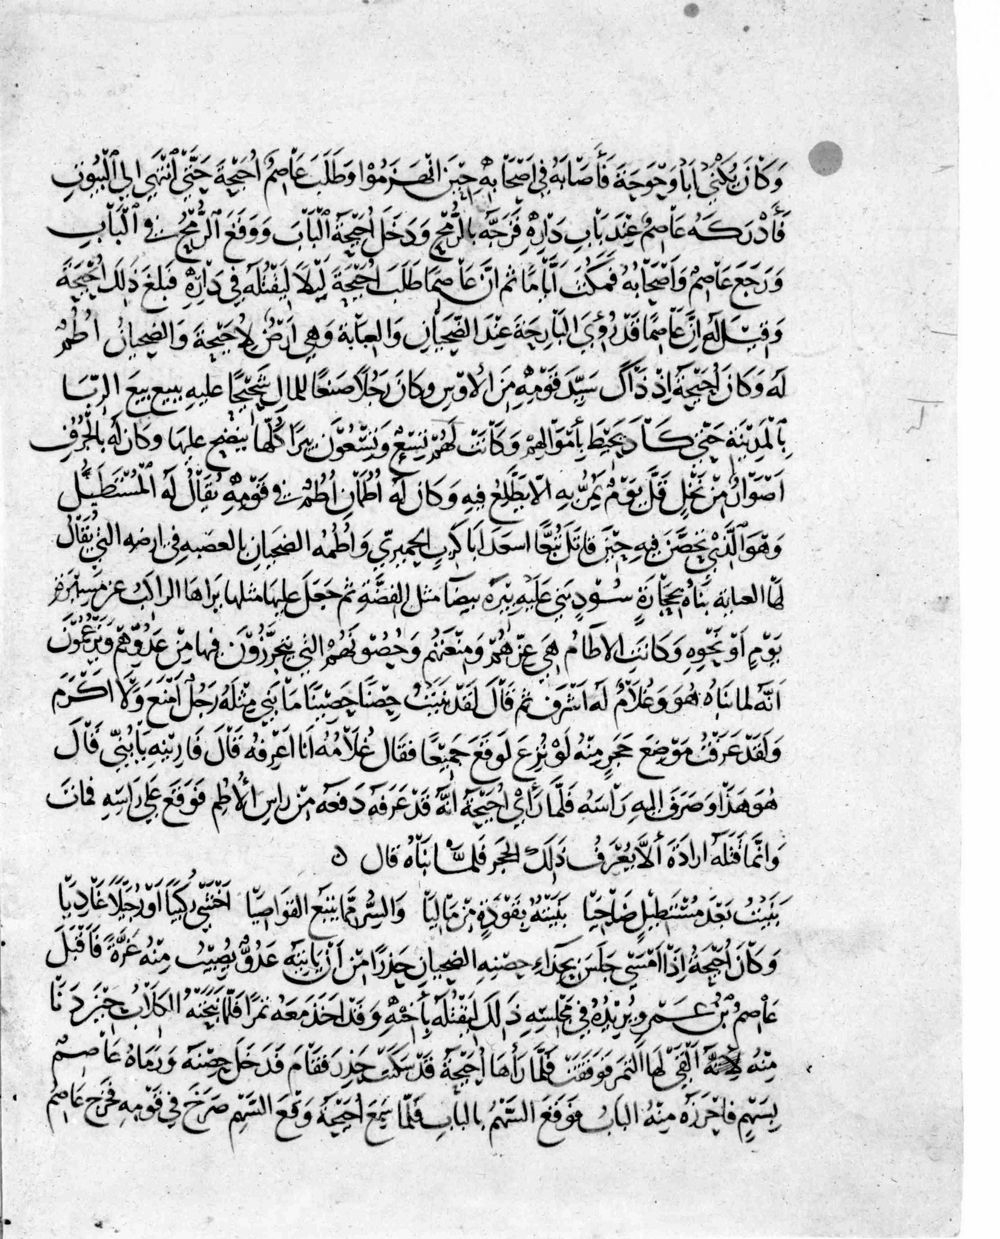 وَكَانَ يُكْنَى اَبَا وَحْوَحَةَ فَأَصَابَهُ فِي اَصْحَابِهِ حِيْنَ انْهَزَمُوْا وَطَلَبَ عَاصِمٌ اُحَيْحَةَ حَتَّى اَنْتَهَى اِلَى الْبُيُوتِ
فَأَدْرَكَهُ عَاصِمٌ عِنْدَ بَابِ دَارِهِ فَزَجَّهُ بِالرُّمْحِ وَدَخَلَ اُحَيْحَةُ الْبَابَ وَوَقَعَ الرُّمْحُ فِي الْبَابِ
وَرَجَعَ عَاصِمٌ وَاَصْحَابُهُ فَمَكَثَ اَيَّامًا ثم انَّ عَاصِمًا طَلَبَ اُحَيْحَةَ لَيْلًا لِيَقْتُلَهُ فِي دَارِهِ فَبَلَغَ ذٰلِكَ اُحَيْحَةَ
وَقِيْلَ لَهُ اِنَّ عَاصِمًا قَدْ رُؤِيَ الْبَارِحَةَ عِنْدَ الضَّحْيَانِ وَالغابة وَهِيَ اَرْضٌ لِاُحَيْحَةَ وَالضحيانُ اُطُمٌ
لَهُ وَكَانَ اُحَيْحَةُ اِذْ ذَاكَ سَيِّدَ قَوْمِهِ مِنَ الْاَوْسِ وكَانَ رَجُلًا صَنَعًا لِلمال شَحِيْحًا عليهِ يبيع بيعَ الرِّبَا
بِالْمَدِيْنَةِ حَتّٰى كَادَ يُحِيْطُ بِأَمْوَالِهِمْ وَكَانَتْ لَهُ تِسْعٌ وَتِسْعُوْنَ بِيرًا كُلُّهَا يَنْضِح عليهَا وَكَانَ لَهُ بِالْجُرُفِ
اَصْوَارٌ مِنْ نَخْلٍ قَلَّ يَوْمٌ يَمُرُّ بِهِ الا يَطَّلِعُ فِيهِ وَكَانَ لَهُ اُطُمَانِ اُطُمٌ فِي قَوْمِهِ يُقَالُ لَهُ الْمُسْتَظِلُّ
وَهُوَ الَّذِي تَحَصَّنَ فِيهِ حِيْنَ قَاتَلَ تُبَّعًا اسعَدَ اَبَا كَرِبٍ الْحِمْيَرِيَّ وَاُطُمُهُ الضحيانِ بالعصبه فِي ارضه التي يُقَالُ
لَهَا الغابة بَنَاهُ بِحِجَارَةٍ سُوْدٍ بَنَى عَلَيْهِ نَبِرَةً بيضَا مثل الفِضَّةِ ثم جَعَلَ عليها مثلها يَرَاهَا الراكبُ من مَسِيْرةِ
يَوْمٍ اَوْ نَحْوِهِ وَكَانَت الاطَامُ هِيَ عِزّهُمْ وَمَنَعَتُهُمْ وَحُصُوْنُهُمْ التي يَتَحَرَّزُوْنَ فيهَا مِنْ عَدُوِّهِمْ وَيَزْعُمُوْنَ
اَنَّهُ لما بَنَاهُ هُوَ وَغُلَامٌ لَهُ اَشْرَفَ ثم قَالَ لَقَدْ بَنَيْتُ حِصْنًا حَصِيْنًا مَا بَنَى مِثْلَهُ رَجُلٌ اَمْنَعَ وَلَا اَكْرَمَ
وَلَقَدْ عَرَفْتُ مَوْضِعَ حَجَرٍ مِنْهُ لَوْ نُزِعَ لَوَقَعَ جَمِيْعًا فقال غُلَامُهُ اَنَا اَعْرِفُهُ قَالَ فَارِنِيهِ يَا بُنَيَّ قَالَ
هُوَ هَذَا وَصَرَفَ اِلَيهِ رَأْسَهُ فَلَمَّا رَأَى اُحَيْحَةُ اَنَّهُ قَدْ عَرَفَهُ دَفَعَهُ مِنْ رَاسِ الْاُطُمِ فَوَقَعَ عَلَى رَاسِهِ فَمَاتَ
وَانَّمَا قَتَلَهُ ارَادَةَ اَلَّا يُعْرَفَ ذٰلِكَ الحَجَر فَلَمَّا بَنَاهُ قال ه
بَنَيْتُ بَعْدَ مُسْتَظِلٍّ ضَاحِيَا بَنَيْتُهُ بِعَصْبَةٍ مِنْ مَالِيَا وَالسِّرُّ مِمَّا يتبَع القَوَاصِيَا اَخْشَى رُكَيْبًا اَوْ رُجَيْلًا غَادِيَا
وَكَانَ اُحَيْحَةُ اِذَا اَمْسَى جَلَسَ بِحِذَاءِ حِصْنِهِ الضحيانِ حِذَرًا مِنْ اَنْ يَأْتِيَهُ عَدُوٌّ يُصِيْبُ مِنْهُ غِرَّةً فَاَقْبَلَ
عَاصِمُ بْنُ عَمْرٍو يُرِيْدُهُ فِي مَجْلِسِهِ ذٰلِكَ لِيَقْتُلَهُ بِأَخِيْهِ وَقَدْ اَخَذَ مَعَهُ تَمْرًا فَلَمَّا نَبَحَتْهُ الكِلَابُ حِيْنَ دَنَا
مِنْهُ اَلْقَى لَهَا التمرَ فَوَقَفَتْ فَلَمَّا رَأَهَا اُحَيْحَةُ قَدْ سَكَنَتْ حَذِرَ فَقَامَ قَدْ دَخَلَ حِصْنَهُ وَرَمَاهُ عَاصِمٌ
بِسَهْمٍ فَاَحْرَزَهُ مِنْهُ البَابُ فَوَقَعَ السَّهْمُ بِالبَابِ فَلَمَّا سَمِعَ اُحَيْحَةُ وَقْعَ السَّهْمِ صَرَخَ فِي قَوْمِهِ فَخَرَجَ عَاصِمٌ